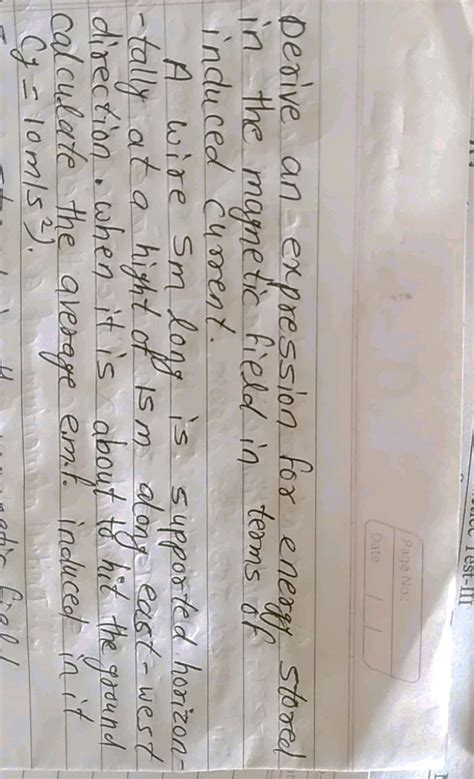 Page No.:
Date / /
Derive an expression for energy stored
in the magnetic field in terms of
induced current.
A wire 5m long is supported horizon-
-tally at a hight of 15m along east-west
direction. when it is about to hit the ground
calculate the average e.m.f. induced in it
(g = 10m/s²).